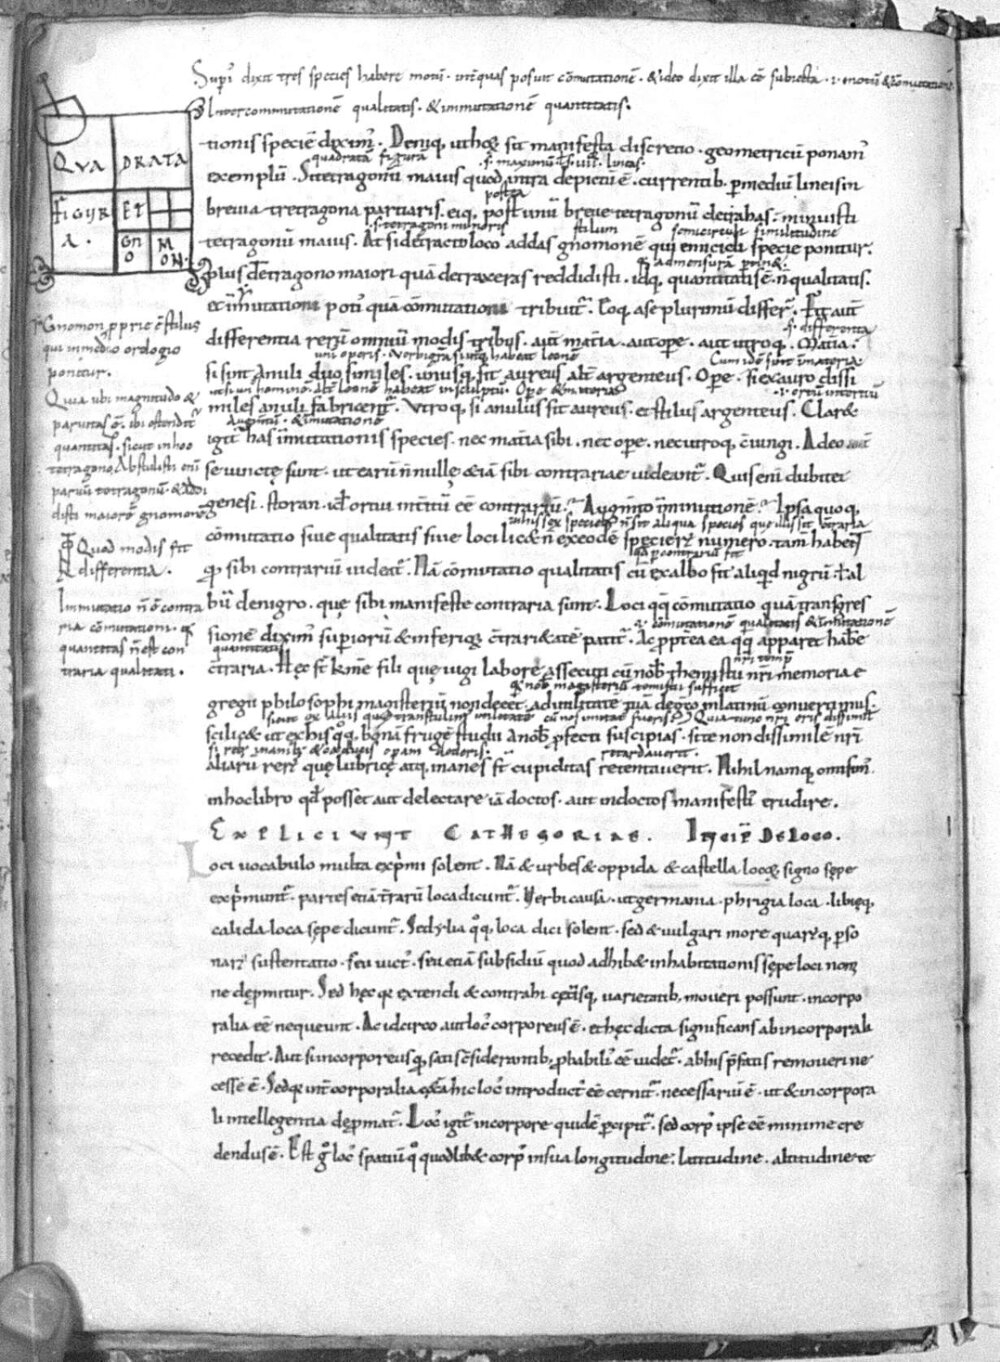 Supi dixit tres species habere motū · int quas posuit cōmutationē · & ideo dixit illa eē subiecta · i · motū & cōmutationē
Inter commutationē qualitatis · & immutationē quantitatis ·
QVA DRATA
FIGVR ET
A ·
GN M
O ON ·
tionis speciē diximꝰ · Deniq, ut hęc sit manifesta discretio · geometricū ponamꝰ
quadrata figura
exemplū · Si tetragonū maius quod intra depictū ē · currentib, p mediū lineis in
postea
brevia tetragona partiaris · eiq, post unū breve tetragonū detrahas · minuisti
.s. tetragoni minoris stilum semicirculi similitudine
tetragonū maius · At si detracto loco addas gnomonē qui emicicli specie ponitur ·
plus detragono maiori quā detraxeras reddidisti · idq, quantitatis ē · n̄ qualitatis ·
& immutationi poti quā cōmutationi tribuit · Loq, a se plurimū differ · Fit aut
.s. differentia
differentia rerū omniū modis tribus · aut materia · aut ope · aut utroq, · Materia ·
uni operis · Verbi gra si utq, habeat leonē Cum idē sunt in materia ·
si sint anuli duo similes · unusq, sit aureus alt argenteus · Ope · si ex auro dissi
miles anuli fabricent · Vtroq, si anulus sit aureus · et stilus argenteus · Claret
Augmtū · & imutatione
igit has imutationis species · nec materia sibi · nec ope · nec utroq, c̄iungi · Adeo aut
seiunctę sunt · ut earū n̄ nullę & iā sibi contrariae videant · Quis enī dubitet
genesi · storan · id ortui intitū eē contrariū · Augmto imminutionē · Ipsa quoq,
cōmutatio siue qualitatis siue loci licet n̄ ex eodē specierꝝ numero · tam habet
qd p contrariū fit
qd sibi contrariū videat · Nā cōmutatio qualitatis cū ex albo fit aliqd nigrū · t al
bū de nigro · quę sibi manifeste contraria sunt · Loci qq cōmutatio quā transgres
i · cōmutationē qualitatis & inmutationē
sionē diximꝰ supiorū & inferiorꝝ c̄trarietatē patit · Ac pptea ea qq apparet habe
quantitatis
c̄traria · Hęc st kme fili quę iugi labore assecuti cū nob themistii nri memoria e
gregii philosophi magisteriū non decet · ad utilitatē tuā de gręco in latinū convertimus ·
scilic& ut ex his qq, bonā frugē studii a nob pfecti suscipias · si te non dissimilē nri
retardaverit ·
aliarū rerꝝ quę lubricę atq, inanes st cupiditas retentaverit · Nihil namq, omisimꝰ
in hoc libro qd posset aut delectare iā doctos · aut indoctos manifesti erudire ·
EXPLICIUNT CATHEGORIAE · INCIP DE LOCO ·
Loci vocabulo multa exprimi solent · Nā & urbes & oppida & castella locoꝝ signo sępe
exprimunt · partes etiā trarū loca dicunt · Verbi causa · ut germania · phrigia loca · libięq,
calida loca sępe dicunt · Sed talia qq, loca dici solent · sed & vulgari more quarūq, pso
narꝝ sustentatio · seu vict · seu etiā subsidiū quod adhib& inhabitationis sępe loci nomi
ne depmitur · Sed hęc qr extendi & contrahi cęterisq, varietatib, moveri possunt · incorpo
ralia eē nequeunt · Ac idcirco aut loc corporeus ē · et hęc dicta significans ab incorporali
recedit · Aut si incorporeus qd, satis c̄siderantib, pbabili eē videt · ab his pfatis removeri ne
cesse ē · Sed qr int corporalia & iā hic loc introduct eē cernit · necessariū ē · ut & incorpora
li intellegentia depmat · Loc igit incorpore quidē pcipit · sed corp ipse eē minime cre
dendus ē · Est g loc spatiū q quodlib& corp in sua longitudine : latitudine · altitudine te
Gnomon pprie ē stilus
qui in medio orologio
ponitur ·
Quia ubi magnitudo &
paruitas ē · ibi ostendit
quantitas · sicut in hoc
tetragono · Abstulisti enī
parvū tetragonū · & addi
disti maiorē gnomonē
Quod modis fit
differentia ·
Immutatio n̄ ē contra
ria cōmutationi · qr
quantitas n̄ est con
traria qualitati ·